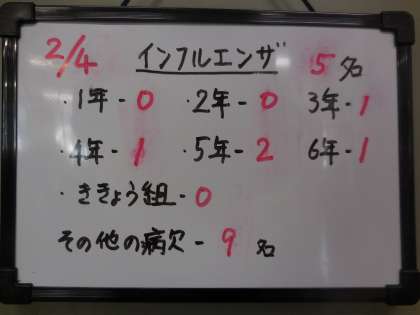 2/4 インフルエンザ 5名
・1年-0 ・2年-0 3年-1
・4年-1 ・5年-2 6年-1
・ききょう組-0
その他の病欠-9名